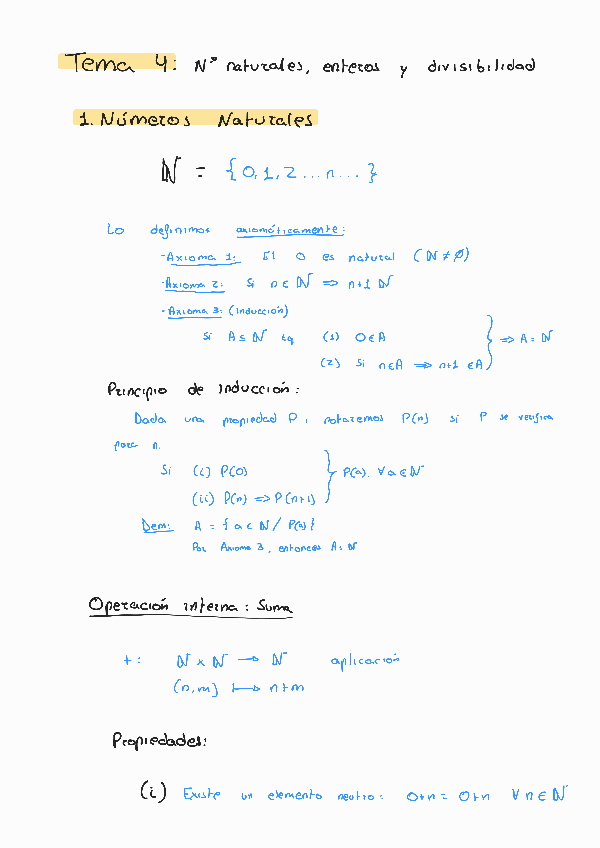 Tema 4: Nº naturales, enteros y divisibilidad
1. Números Naturales
ℕ = {0,1,2...n...}
Lo definimos axiomáticamente:
-Axioma 1: El 0 es natural (ℕ ≠ ∅)
-Axioma 2: Si n ∈ ℕ ⇒ n+1 ℕ
-Axioma 3: (Inducción)
Si A ⊆ ℕ tq (1) 0 ∈ A } ⇒ A = ℕ
(2) Si n ∈ A ⇒ n+1 ∈ A
Principio de Inducción:
Dada una propiedad P, notaremos P(n) si P se verifica
para n.
Si (i) P(0) } P(a). ∀ a ∈ ℕ
(ii) P(n) ⇒ P(n+1)
Dem: A = {a ∈ ℕ / P(a)}
Por Axioma 3, entonces A = ℕ
Operación interna: Suma
+: ℕ x ℕ → ℕ aplicación
(n,m) ↦ n+m
Propiedades:
(i) Existe un elemento neutro: 0+n = 0+n ∀ n ∈ ℕ